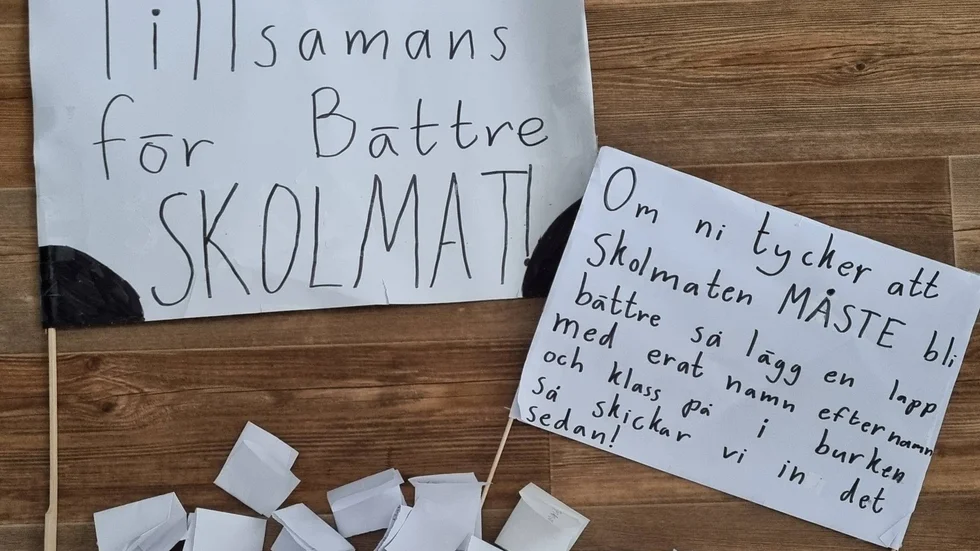 Tillsamans
för Bättre
SKOLMAT!
Om ni tycker att
Skolmaten MÅSTE bli
bättre så lägg en lapp
med erat namn efternamn
och klass på i burken
så skickar vi in det
sedan!